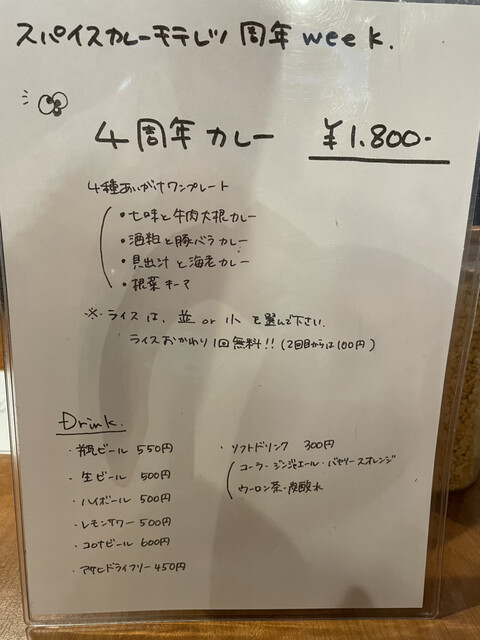 スパイスカレーモテレツ 周年 week.
4周年カレー ¥1.800-
4種あいがけワンプレート
・七味と牛肉大根カレー
・酒粕と豚バラカレー
・貝出汁と海老カレー
・根菜キーマ
※ライスは、並 or 小 を選んで下さい.
ライスおかわり1回無料!!(2回目からは100円)
Drink.
・瓶ビール 550円
・生ビール 500円
・ハイボール 500円
・レモンサワー 500円
・コロナビール 600円
・アサヒドライフリー 450円
・ソフトドリンク 300円
コーラ・ジンジャエール・バヤリースオレンジ
ウーロン茶・炭酸水